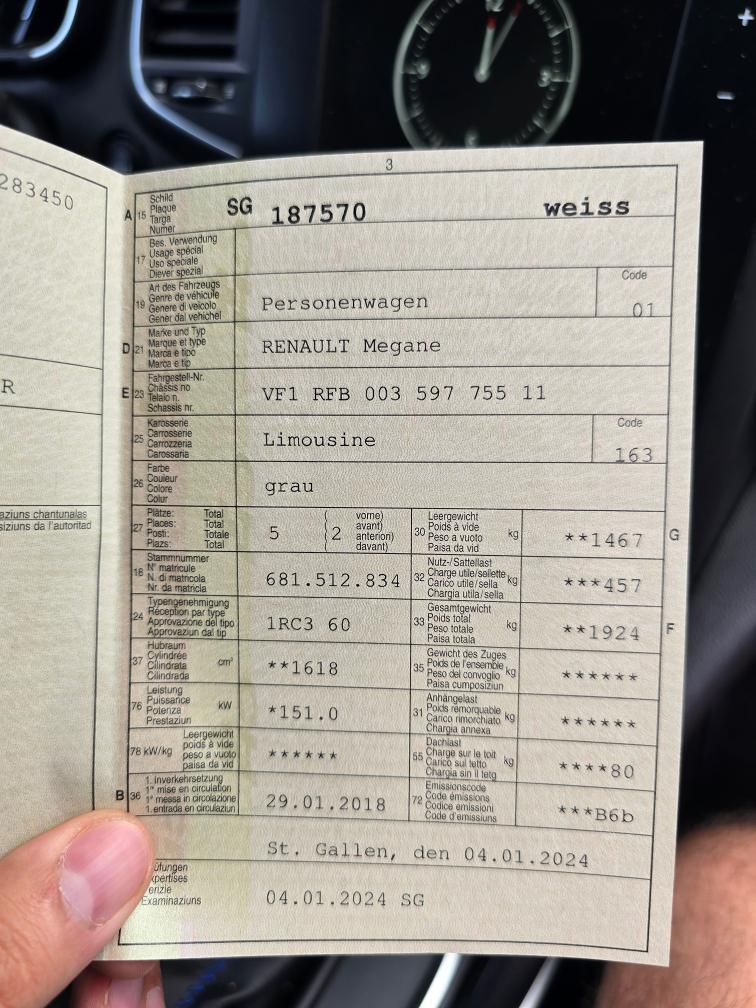 283450
R
aziuns chantunalas
siziuns da l'autoritad
3
A 15 Schild
Plaque
Targa
Numer
SG 187570 weiss
17 Bes. Verwendung
Usage spécial
Uso speciale
Diever spezial
19 Art des Fahrzeugs
Genre de véhicule
Genere di veicolo
Gener dal vehichel
Personenwagen
Code
01
D 21 Marke und Typ
Marque et type
Marca e tipo
Marca e tip
RENAULT Megane
E 23 Fahrgestell-Nr.
Châssis no
Telaio n.
Schassis nr.
VF1 RFB 003 597 755 11
25 Karosserie
Carrosserie
Carrozzeria
Carossaria
Limousine
Code
163
26 Farbe
Couleur
Colore
Colur
grau
27 Plätze: Total
Places: Total
Posti: Totale
Plazs: Total
5 (2 vorne)
avant)
anteriori)
davant)
30 Leergewicht
Poids à vide
Peso a vuoto
Paisa da vid
kg **1467 G
18 Stammnummer
N° matricule
N. di matricola
Nr. da matricla
681.512.834
32 Nutz-/Sattellast
Charge utile/sellette
Carico utile/sella
Chargia utila/sella
kg ***457
24 Typengenehmigung
Réception par type
Approvazione del tipo
Approvaziun dal tip
1RC3 60
33 Gesamtgewicht
Poids total
Peso totale
Paisa totala
kg **1924 F
37 Hubraum
Cylindrée
Cilindrata
Cilindrada
cm³ **1618
35 Gewicht des Zuges
Poids de l'ensemble
Peso del convoglio
Paisa cumposiziun
kg ******
76 Leistung
Puissance
Potenza
Prestaziun
kW *151.0
31 Anhängelast
Poids remorquable
Carico rimorchiato
Chargia annexa
kg ******
78 kW/kg Leergewicht
poids à vide
peso a vuoto
paisa da vid
******
55 Dachlast
Charge sur le toit
Carico sul tetto
Chargia sin il tetg
kg ****80
B 36 1. Inverkehrsetzung
1re mise en circulation
1a messa in circolazione
1. entrada en circulaziun
29.01.2018
72 Emissionscode
Code émissions
Codice emissioni
Code d'emissiuns
***B6b
St. Gallen, den 04.01.2024
üfungen
xpertises
erizie
Examinaziuns
04.01.2024 SG